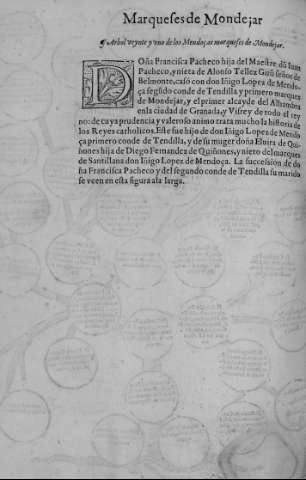 Marqueses de Mondejar
¶ Arbol veynte y vno de los Mendoças marqueses de Mondejar.
DOña Francisca Pacheco hija del Maestre dõ Iuan
Pacheco, y nieta de Alonso Tellez Girõ señor de
Belmonte, casó con don Iñigo Lopez de Mendo
ça segũdo conde de Tendilla y primero marques
de Mondejar, y el primer alcayde del Alhambra
en la ciudad de Granada, y Visrey de todo el rey
no: de cuya prudencia y valeroso animo trata mucho la historia de
los Reyes catholicos. Este fue hijo de don Iñigo Lopez de Mendo
ça primero conde de Tendilla, y de su muger doña Eluira de Qui-
ñones hija de Diego Fernandez de Quiñones, y nieto del marques
de Santillana don Iñigo Lopez de Mendoça. La succession de do
ña Francisca Pacheco y del segundo conde de Tendilla su marido
se vee en esta figura a la larga.